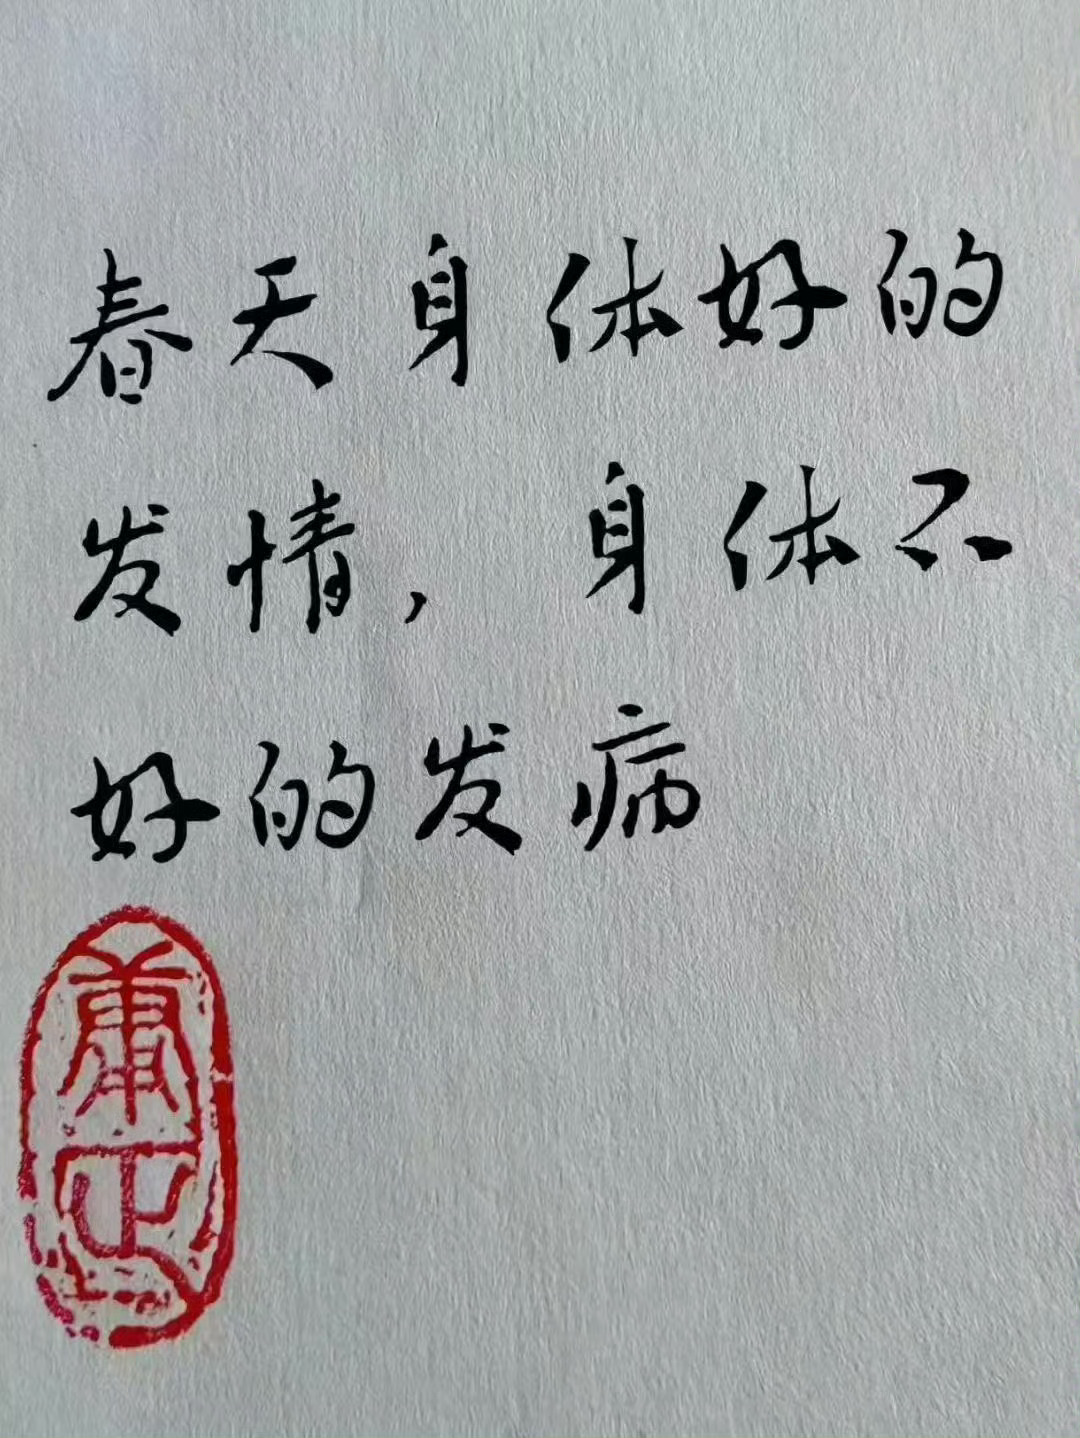 春天身体好的
发情，身体不
好的发病